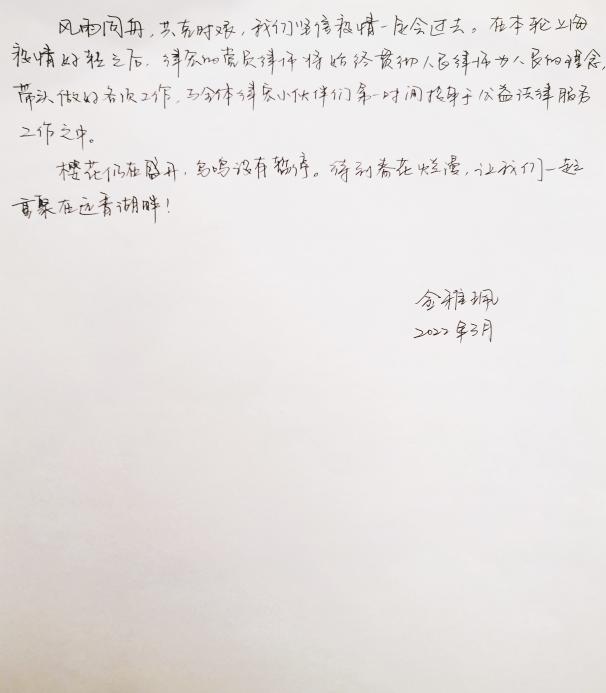 风雨同舟，共克时艰，我们坚信疫情一定会过去。在本轮上海
疫情好转之后，律宏的党员律师将始终贯彻人民律师为人民的理念，
带头做好各项工作，与全体律宏小伙伴们第一时间投身于公益法律服务
工作之中。
樱花仍在盛开，鸟鸣没有暂停。待到春花烂漫，让我们一起
重聚在远香湖畔！
金雅珮
2022年3月